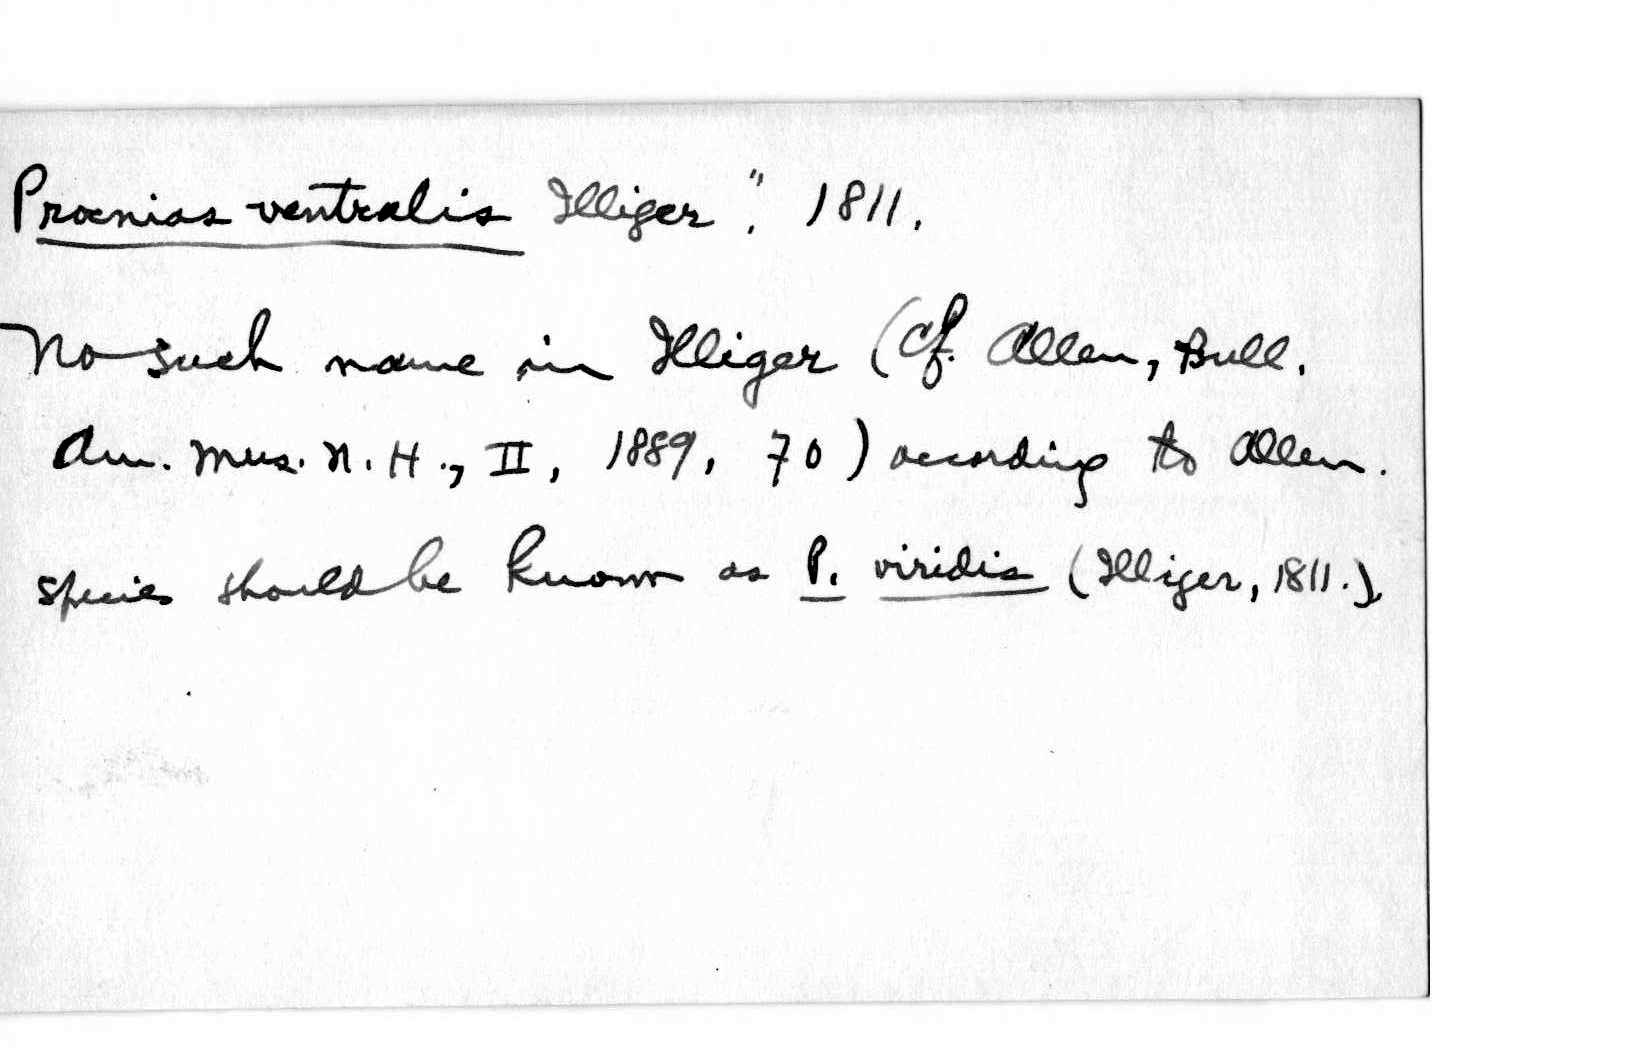 Procnias ventralis Illiger", 1811.
No such name in Illiger (Cf. Allen, Bull.
Am. Mus. N. H., II, 1889, 70) according to Allen.
species should be known as P. viridis (Illiger, 1811.).